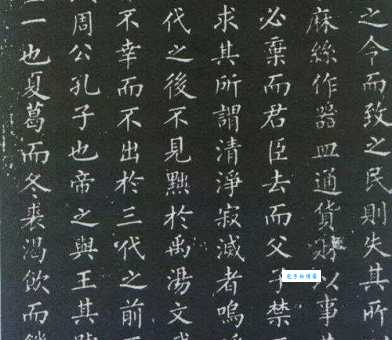 之令而致之民則失其所
麻絲作器皿通貨財以事
必棄而君臣去而父子禁
求其所謂清淨寂滅者嗚
代之後不見黜於禹湯文
不幸而不出於三代之前
周公孔子也帝之與王其
一也夏葛而冬裘渴飲而